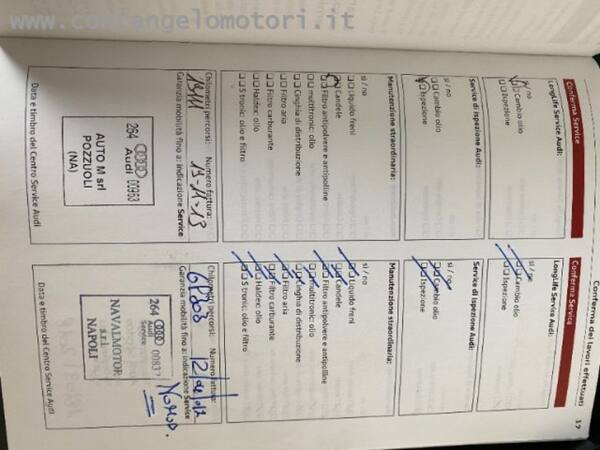 www.contangelomotori.it
Conferma dei lavori effettuati
17
Conferma Service
LongLife Service Audi:
sì / no
Cambio olio
Ispezione
Service di ispezione Audi:
sì / no
Cambio olio
Ispezione
Manutenzione straordinaria:
sì / no
Liquido freni
Candele
Filtro antipolvere e antipolline
multitronic: olio
Cinghia di distribuzione
Filtro aria
Filtro carburante
Haldex: olio
S tronic: olio e filtro
Chilometri percorsi: Numero fattura:
19-11-13
Garanzia mobilità fino a: indicazione Service
264 Audi 00963
AUTO M srl
POZZUOLI
(NA)
Data e timbro del Centro Service Audi
Conferma Service
LongLife Service Audi:
sì / no
Cambio olio
Ispezione
Service di ispezione Audi:
sì / no
Cambio olio
Ispezione
Manutenzione straordinaria:
sì / no
Liquido freni
Candele
Filtro antipolvere e antipolline
multitronic: olio
Cinghia di distribuzione
Filtro aria
Filtro carburante
Haldex: olio
S tronic: olio e filtro
Chilometri percorsi: Numero fattura:
Garanzia mobilità fino a: indicazione Service
264 Audi
Service
NAVALMOTOR
s.r.l.
NAPOLI
Data e timbro del Centro Service Audi